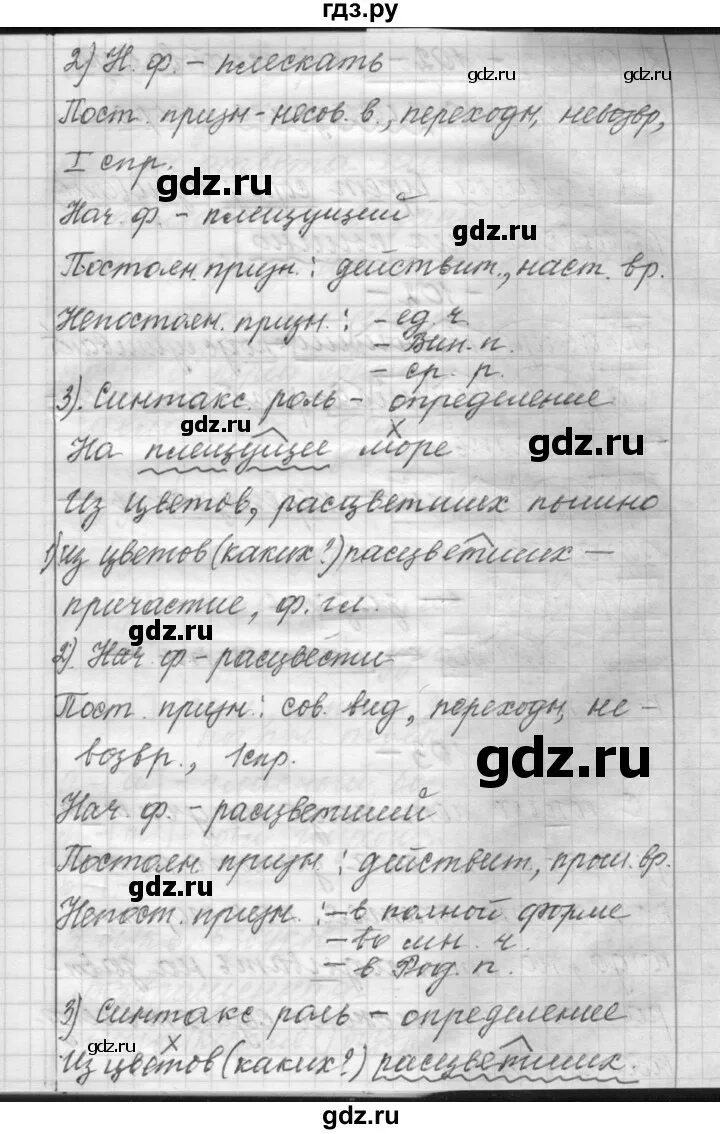 гдз.ру
2) Н. ф. – плескать
gdz.ru
gdz.ru
Пост. призн – несов. в., переходн, невозвр,
I спр.
gdz.ru
Нач. ф. – плещущий
gdz.ru
Постоян. призн.: действит., наст. вр.
Непостоян. призн.: – ед. ч.
– Вин. п.
– ср. р.
3). Синтакс. роль – определение
gdz.ru
На плещущее море
gdz.ru
Из цветов, расцветших пышно
1) из цветов (каких?) расцветших –
причастие, ф. гл.
gdz.ru
2). Нач. ф – расцвести
Пост. призн.: сов. вид, переходн, не-
возвр., 1 спр.
gdz.ru
Нач. ф. – расцветший
Постоян. призн.: действит, прош. вр.
gdz.ru
Непост. призн.: – в полной форме
– во мн. ч.
– в Род. п.
3) Синтакс. роль – определение
gdz.ru
gdz.ru
Из цветов (каких?) расцветших.
gdz.ru